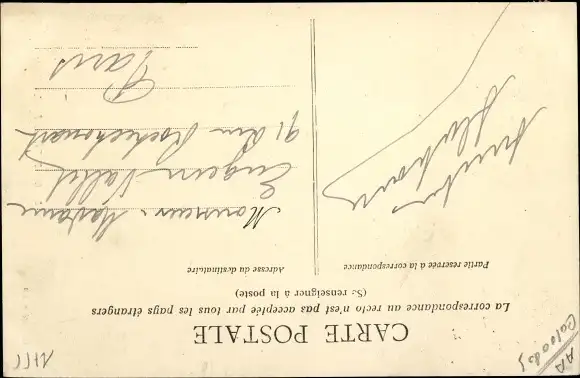 CARTE POSTALE
La correspondance au recto n'est pas acceptée par tous les pays étrangers
(Se renseigner à la poste)
Partie réservée à la correspondance
Adresse du destinataire
Monsieur Madame
Eugène Vallet
91 Rue Rochechouart
Paris